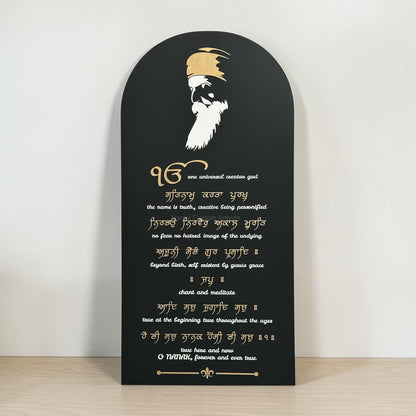 ੴ one universal creator god
ਸਤਿਨਾਮੁ ਕਰਤਾ ਪੁਰਖੁ
the name is truth, creative being personified
ਨਿਰਭਉ ਨਿਰਵੈਰੁ ਅਕਾਲ ਮੂਰਤਿ
no fear no hatred image of the undying
ਅਜੂਨੀ ਸੈਭੰ ਗੁਰ ਪ੍ਰਸਾਦਿ ॥
beyond birth, self existent by gurus grace
॥ ਜਪੁ ॥
chant and meditate
ਆਦਿ ਸਚੁ ਜੁਗਾਦਿ ਸਚੁ ॥
true at the beginning true throughout the ages
ਹੈ ਭੀ ਸਚੁ ਨਾਨਕ ਹੋਸੀ ਭੀ ਸਚੁ ॥੧॥
true here and now
O NANAK, forever and ever true